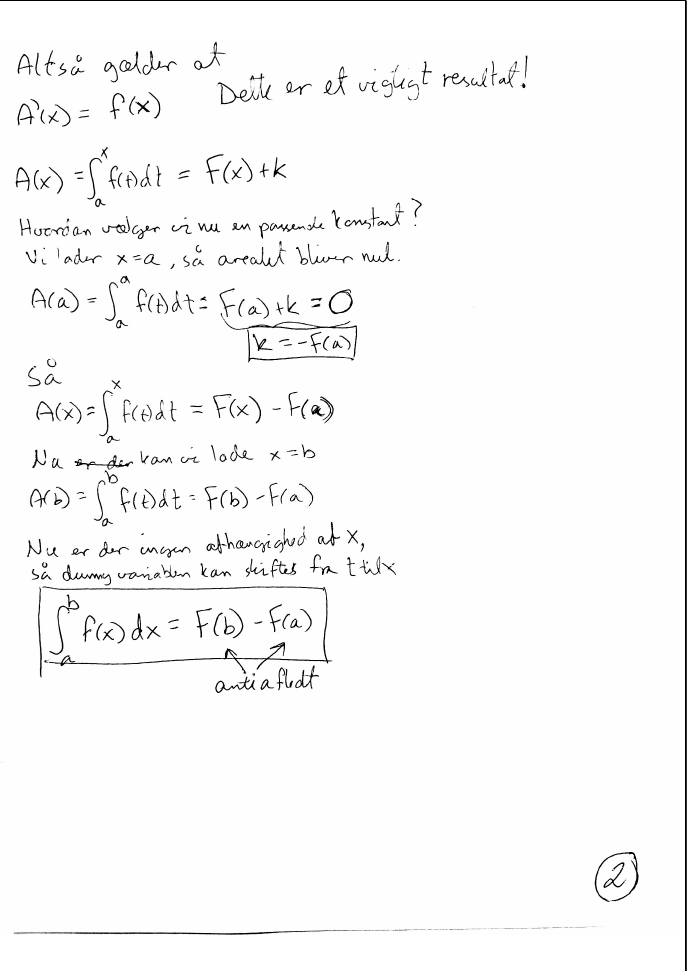 Altså gælder at
A'(x) = f(x) Dette er et vigtigt resultat!
A(x) = ∫ₐˣ f(t)dt = F(x)+k
Hvordan vælger vi nu en passende konstant?
Vi lader x=a, så arealet bliver nul.
A(a) = ∫ₐᵃ f(t)dt = F(a)+k = 0
k = -F(a)
Så
A(x) = ∫ₐˣ f(t)dt = F(x) - F(a)
Nu er der kan vi lade x=b
A(b) = ∫ₐᵇ f(t)dt = F(b) - F(a)
Nu er der ingen afhængighed af x,
så dummy variablen kan skiftes fra t til x
∫ₐᵇ f(x)dx = F(b) - F(a)
antiafledt
2